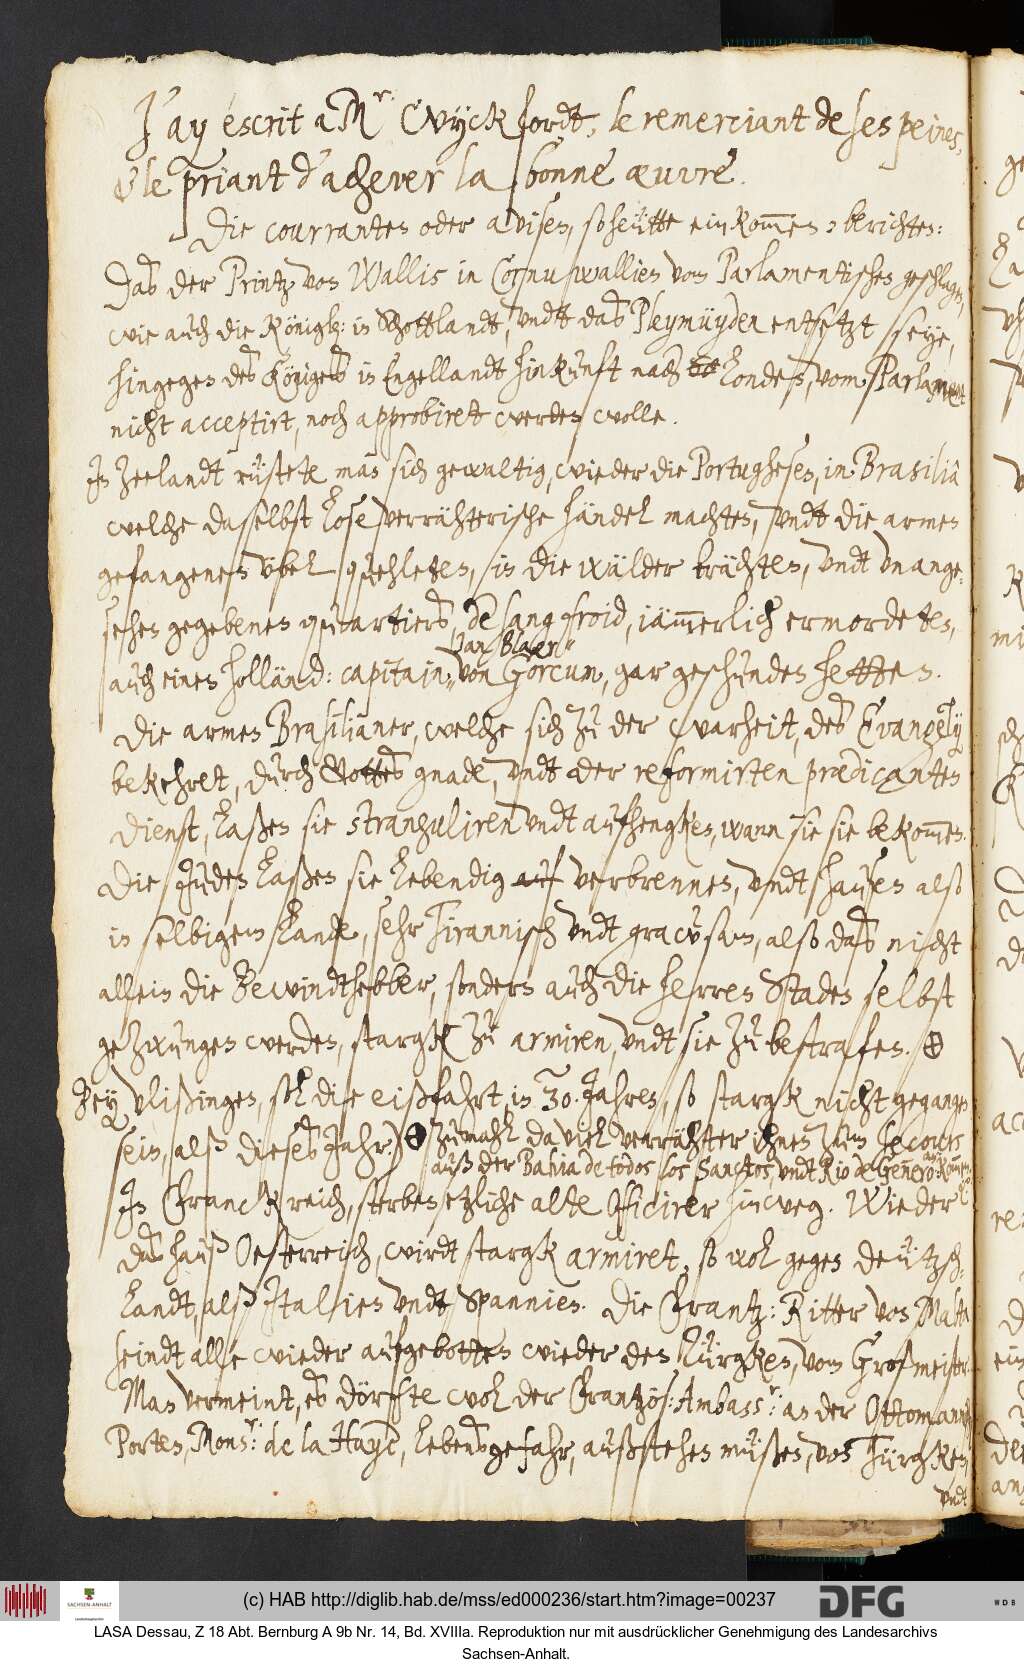 J'ay escrit a Mr: Wyckfordt, le remerciant de ses peines,
& le priant d'achever la bonne œuvre.
Die courranten oder avisen, so heütte einkom̅en, berichten:
Daß der Printz von Wallis in Cornuwallien vom Parlamentischen geschlagen,
wie auch die Königl: in Schottlandt, undt daß Pleymüyden entsetzt seye,
hingegen des Königes in Engellandt hinkunft nach Londen, vom Parlament
nicht acceptirt, noch approbiret werden wolle.
In Zeelandt rüstete man sich gewaltig, wieder die Portughesen, in Brasilia
welche daselbst lose verrähterische händel machten, undt die armen
gefangenen übel quehleten, in die wälder brächten, undt unange-
sehen gegebenen quartiers, de sang froid, jäm̅erlich ermordeten,
Jan Blaer
auch einen holländ: capitain, von Gorcum, gar geschunden hetten.
Die armen Brasilianer, welche sich zu der warheit, des Evangelij
bekehret, durch Gottes gnade, undt der reformirten prædicanten
dienst, laßen sie stranguliren undt aufhengken, wann sie sie bekom̅en.
Die Juden laßen sie lebendig auf verbrennen, undt hausen also
in selbigem Lande, sehr Tirannisch undt grausam, also daß nicht
allein die Bewindthebber, sondern auch die herren Staden selbst
gezwungen werden, stargk zu armiren, undt sie zu bestrafen. ⊕
Bey Vlißingen, sol die eißfahrt, in 30. Jahren, so stargk nicht gegangen
sein, alß dieses Jahr.) ⊕ Zumahl da viel verrähter ihnen zum secours
auß der Bahia de todos los Sanctos, undt Rio de Genero ankom̅en.
In Franckreich, sterben etzliche alte Officirer hinweg. Wieder
das hauß Oesterreich, wirdt stargk armiret, so wol gegen Deützsch-
landt, alß Italien undt Spannien. Die Frantz: Ritter von Malta
seindt alle wieder aufgebotten wieder den Türgken, vom Großmeister.
Man vermeint, es dörfte wol der Frantzös: Ambassr: an der Ottomannisch
Porten, Monsr: de la Haye, lebensgefahr, außstehen müßen, von Türgken,
undt
(c) HAB http://diglib.hab.de/mss/ed000236/start.htm?image=00237
SACHSEN-ANHALT
DFG
WDB
LASA Dessau, Z 18 Abt. Bernburg A 9b Nr. 14, Bd. XVIIIa. Reproduktion nur mit ausdrücklicher Genehmigung des Landesarchivs
Sachsen-Anhalt.